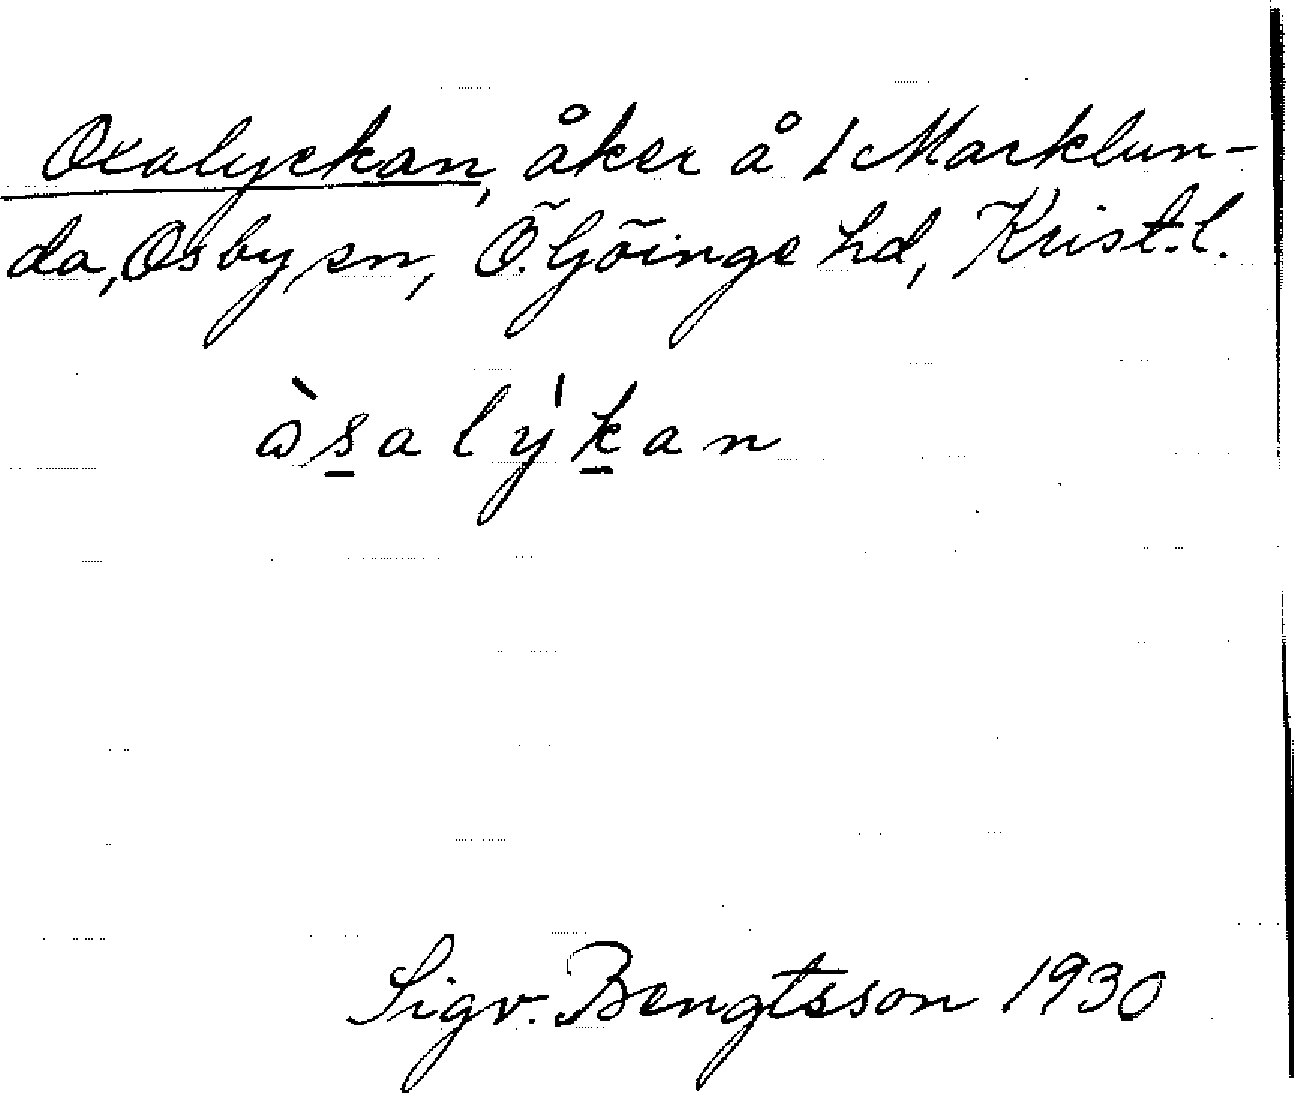 Oxalyckan, åker å 1 Marklun-
da, Osby sn, Ö. Göinge hd, Krist. l.
ɷ̀s̲alýk̲an
Sigv. Bengtsson 1930